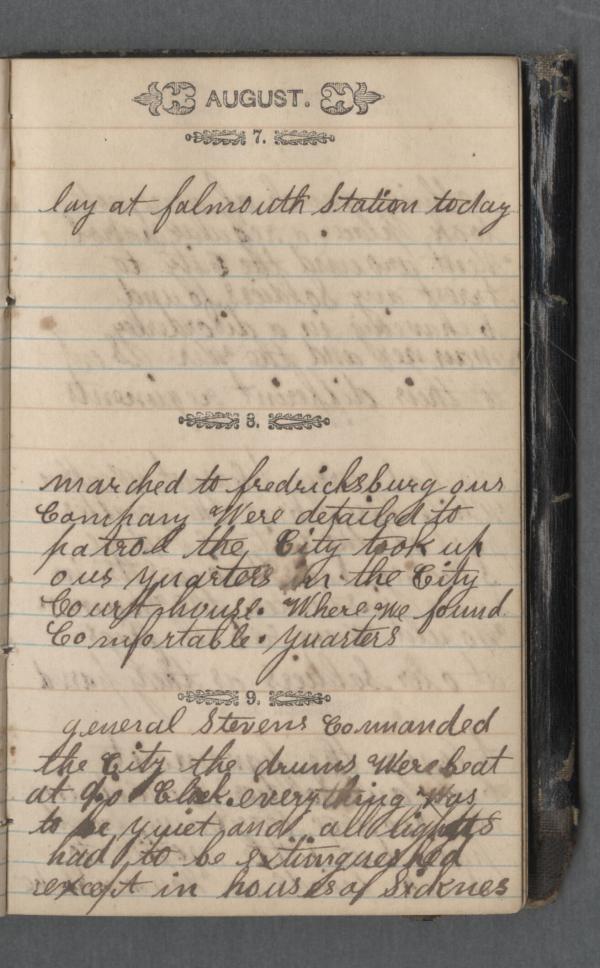 AUGUST.
7.
lay at falmouth Station today
8.
marched to fredricksburg our
Company Were detailed to
patrol the City took up
our quarters in the City
Court house. Where we found
Comfortable. quarters
9.
general Stevens Commanded
the City the drums Were beat
at 9 o Clock. everything Was
to be quiet and all lights
had to be extingueshed
except in houses of Sicknes